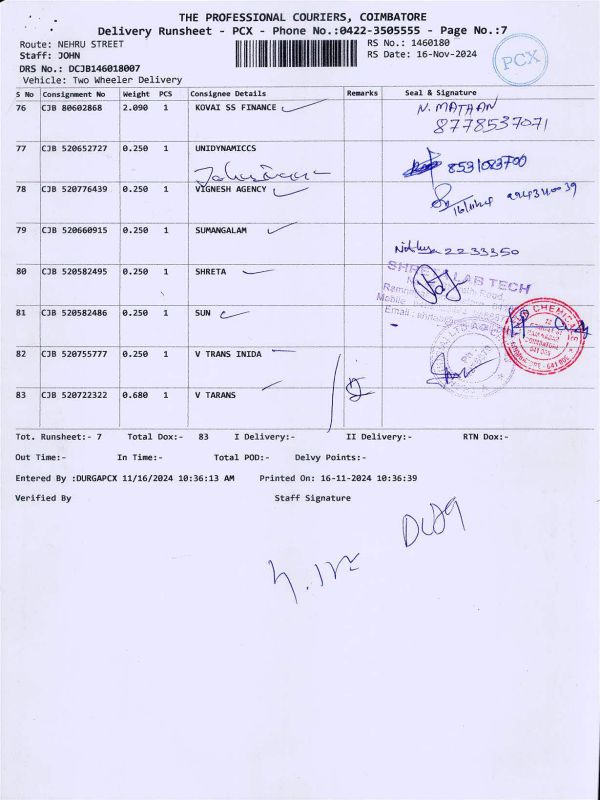 THE PROFESSIONAL COURIERS, COIMBATORE
Delivery Runsheet - PCX - Phone No.:0422-3505555 - Page No.:7
Route: NEHRU STREET RS No.: 1460180
Staff: JOHN RS Date: 16-Nov-2024
PCX
DRS No.: DCJB146018007
Vehicle: Two Wheeler Delivery
S No Consignment No Weight PCS Consignee Details Remarks Seal & Signature
76 CJB 80602868 2.090 1 KOVAI SS FINANCE N. MATHAN
8778537071
77 CJB 520652727 0.250 1 UNIDYNAMICCS
8531083700
78 CJB 520776439 0.250 1 VIGNESH AGENCY
16/11/24
79 CJB 520660915 0.250 1 SUMANGALAM
2233350
80 CJB 520582495 0.250 1 SHRETA
LAB TECH
81 CJB 520582486 0.250 1 SUN
82 CJB 520755777 0.250 1 V TRANS INIDA
83 CJB 520722322 0.680 1 V TARANS
Tot. Runsheet:- 7 Total Dox:- 83 I Delivery:- II Delivery:- RTN Dox:-
Out Time:- In Time:- Total POD:- Delvy Points:-
Entered By :DURGAPCX 11/16/2024 10:36:13 AM Printed On: 16-11-2024 10:36:39
Verified By Staff Signature